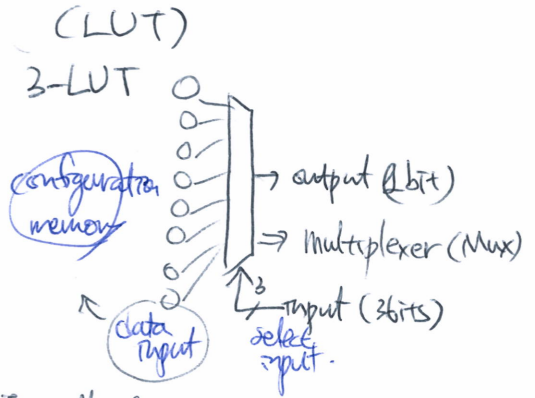 (LUT)
3-LUT
configuration
memory
output (1bit)
multiplexer (Mux)
3
input (3bits)
data
input
select
input.